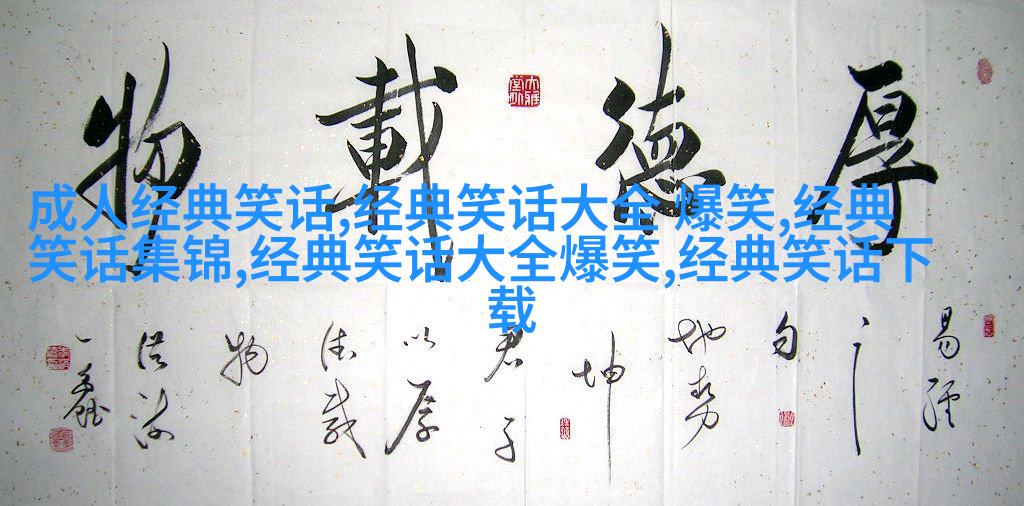 厚德載物
成人经典笑话,经典笑话大全 爆笑,经典
笑话集锦,经典笑话大全爆笑,经典笑话下
载
易經
之
句
地勢
坤
君子
以厚
德載
物